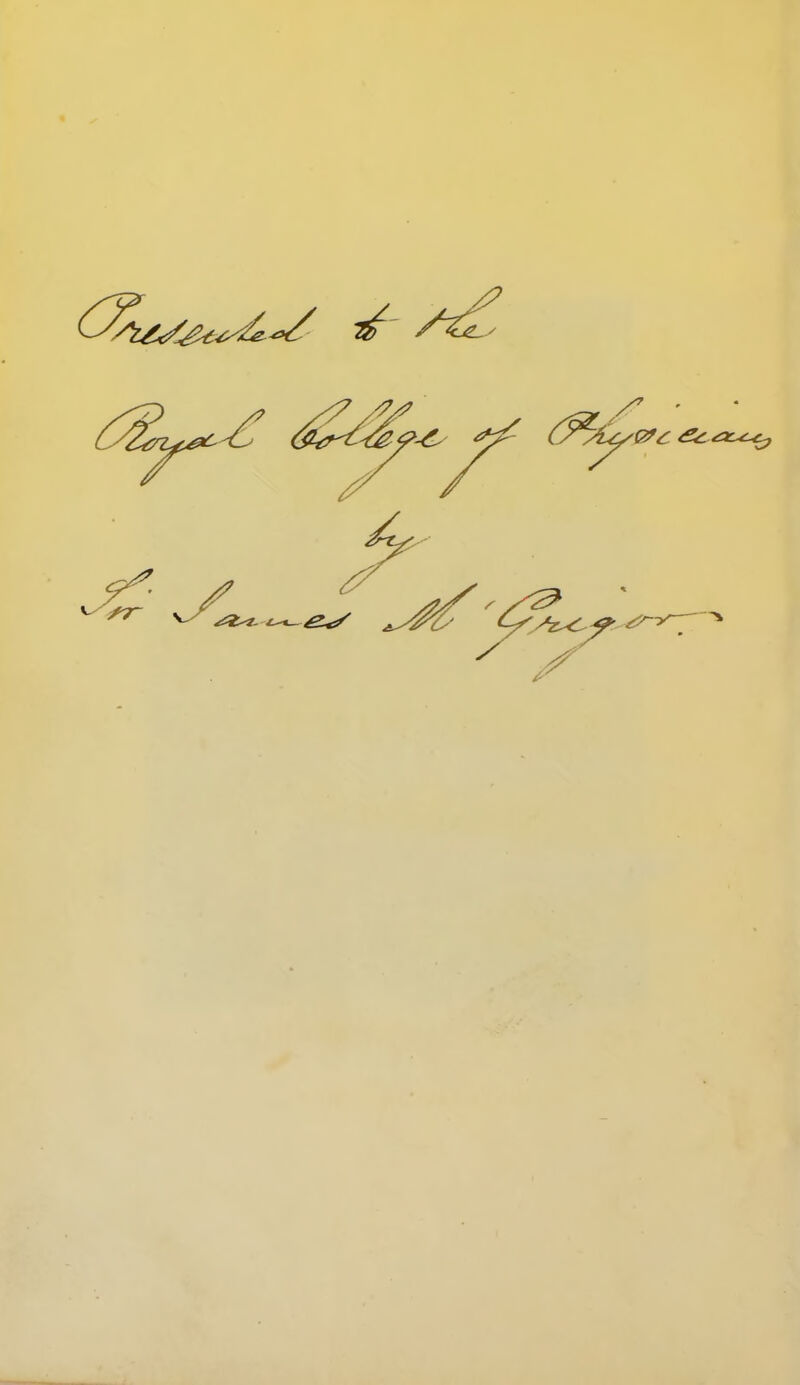 Presented to the
Royal College of Physicians
by
Sr James McGrigor